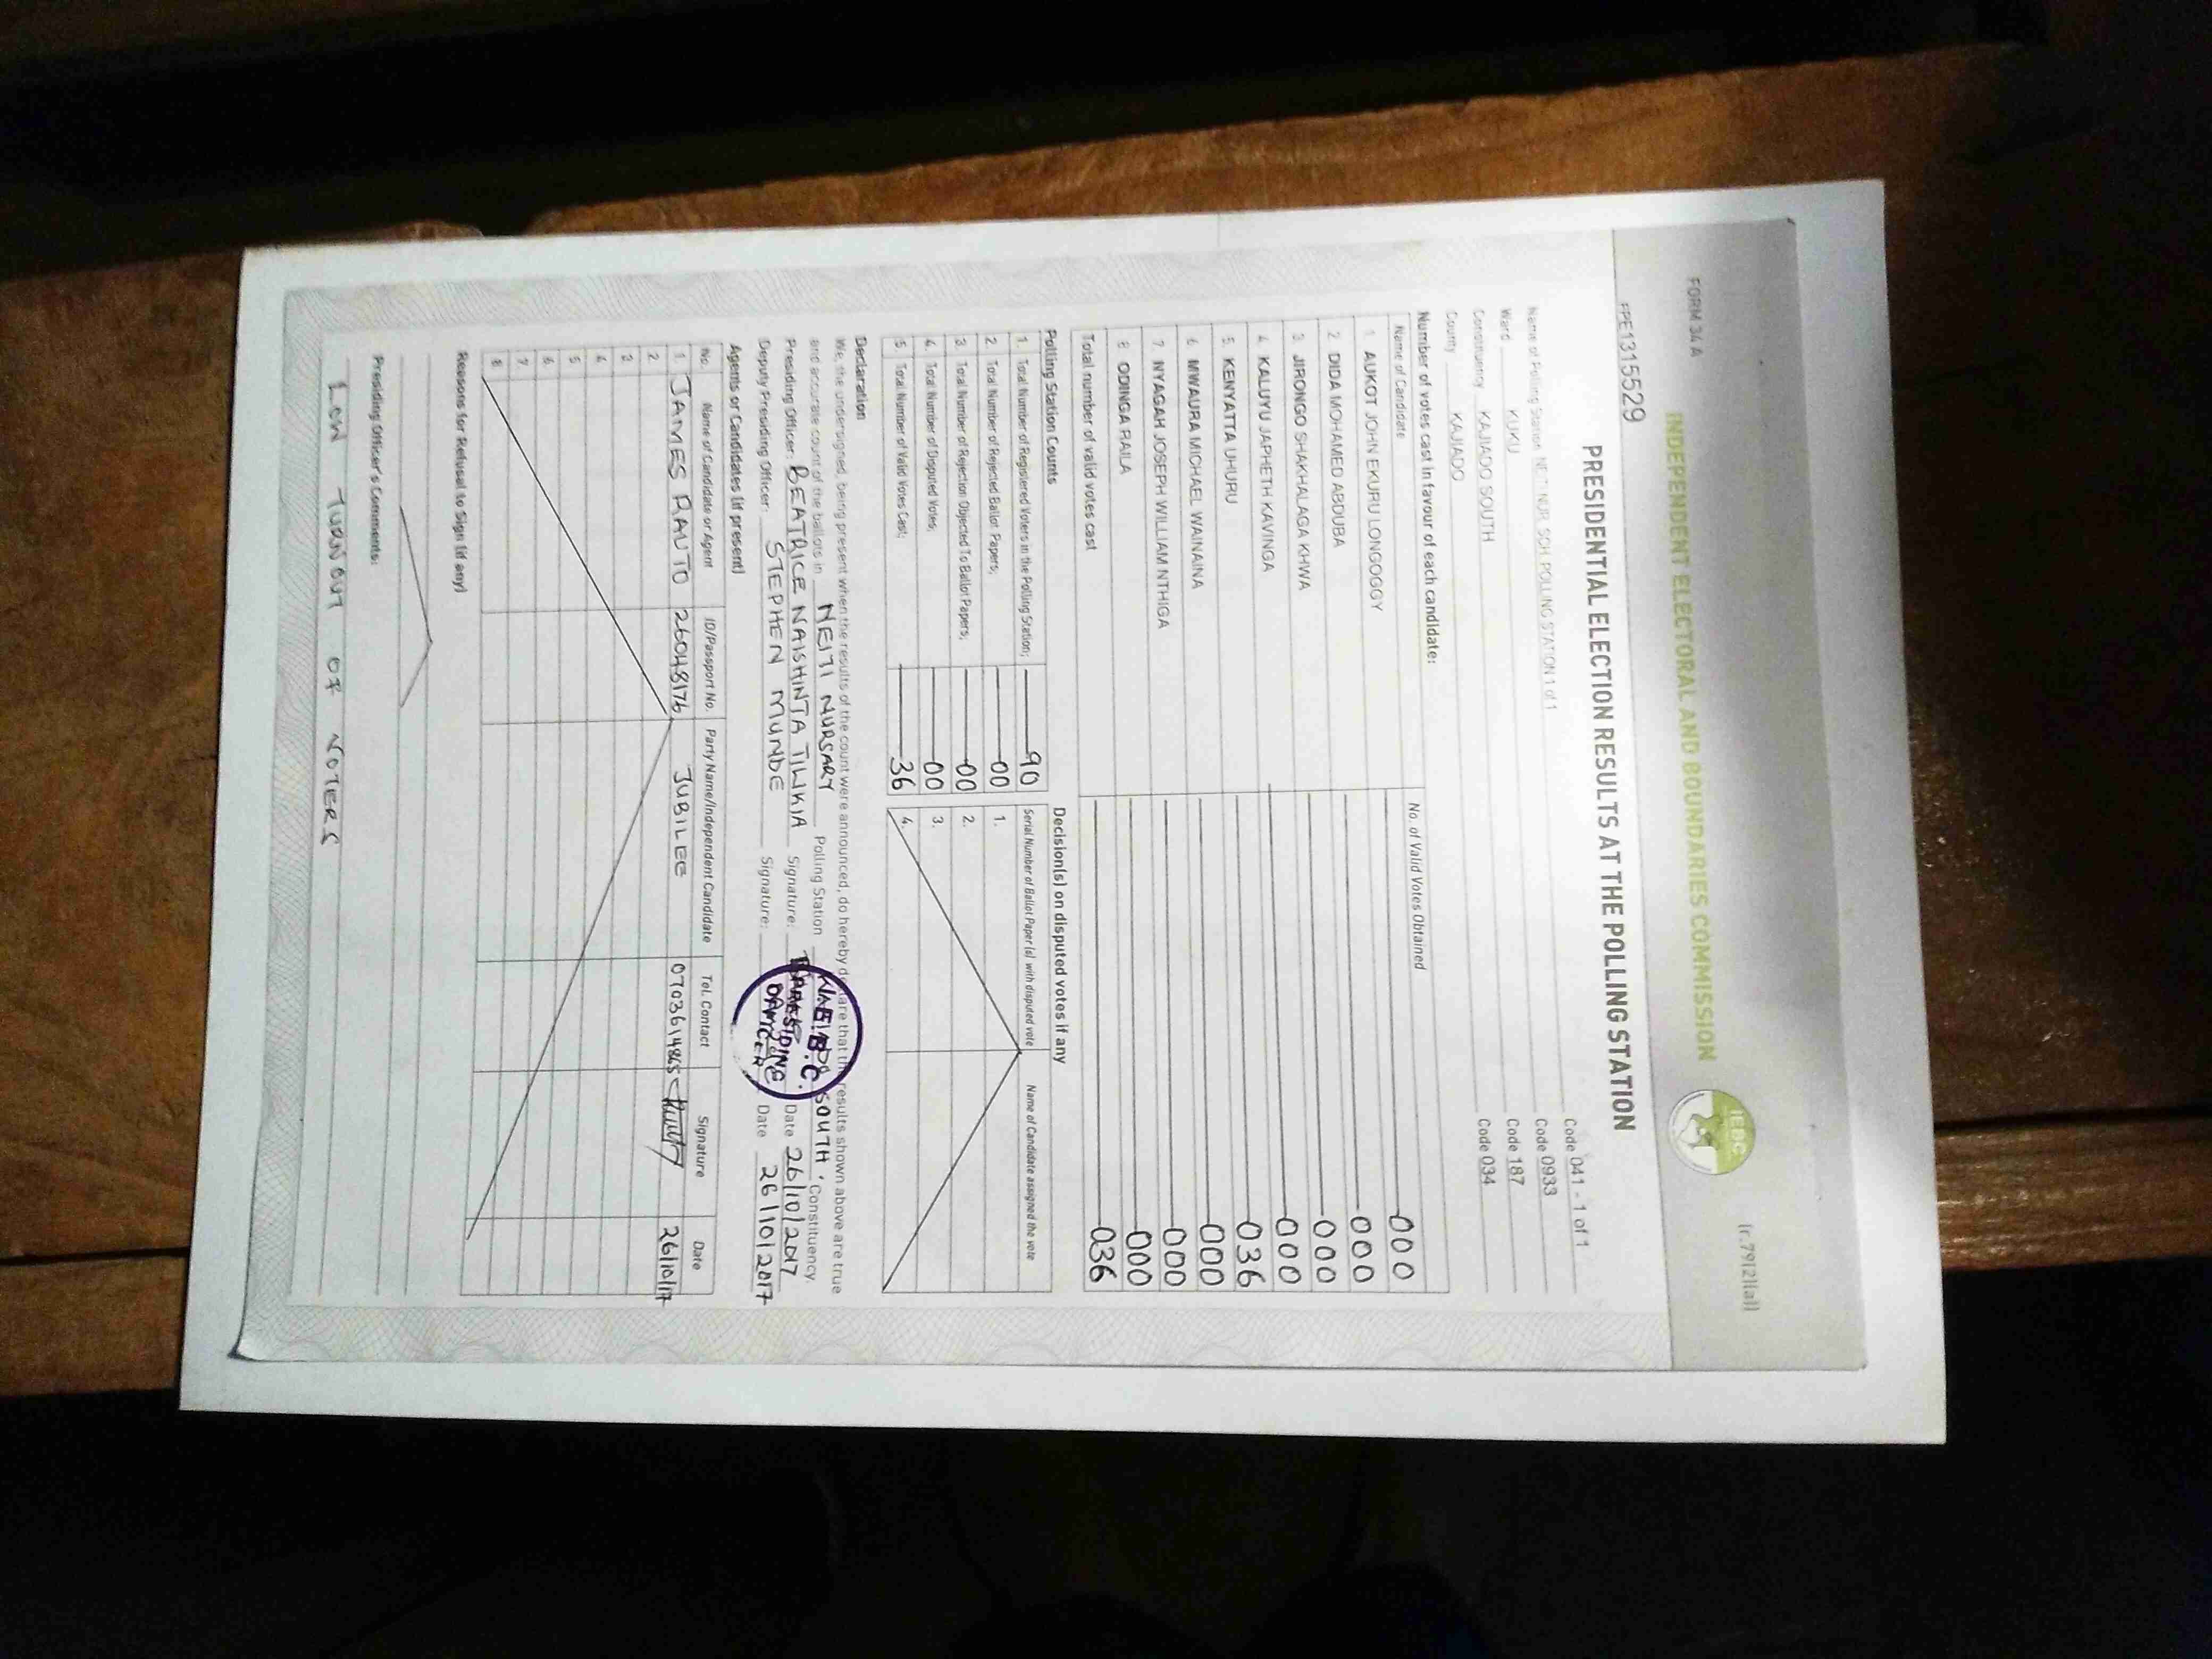 FORM 34 A (r.79(2)(a))
INDEPENDENT ELECTORAL AND BOUNDARIES COMMISSION IEBC
PE1315529
PRESIDENTIAL ELECTION RESULTS AT THE POLLING STATION
Name of Polling Station NEITI NUR. SCH. POLLING STATION 1 of 1 Code 041 - 1 of 1
Ward KUKU Code 0933
Constituency KAJIADO SOUTH Code 187
County KAJIADO Code 034
Number of votes cast in favour of each candidate:
Name of Candidate No. of Valid Votes Obtained
1 AUKOT JOHN EKURU LONGOGGY 000
2 DIDA MOHAMED ABDUBA 000
3 JIRONGO SHAKHALAGA KHWA 000
4 KALUYU JAPHETH KAVINGA 000
5 KENYATTA UHURU 036
6 MWAURA MICHAEL WAINAINA 000
7 NYAGAH JOSEPH WILLIAM NTHIGA 000
8 ODINGA RAILA 000
Total number of valid votes cast 036
Polling Station Counts Decision(s) on disputed votes if any
1. Total Number of Registered Voters in the Polling Station; 90 Serial Number of Ballot Paper (s) with disputed vote Name of Candidate assigned the vote
2. Total Number of Rejected Ballot Papers; 00 1.
3. Total Number of Rejection Objected To Ballot Papers; 00 2.
4. Total Number of Disputed Votes; 00 3.
5. Total Number of Valid Votes Cast; 36 4.
Declaration
We, the undersigned, being present when the results of the count were announced, do hereby declare that the results shown above are true
and accurate count of the ballots in NEITI NURSARY Polling Station SOUTH Constituency.
Presiding Officer: BEATRICE NAISHINTA TILKIA Signature: Date 26/10/2017
Deputy Presiding Officer: STEPHEN MUNDE Signature: Date 26/10/2017
PRESIDING OFFICER
Agents or Candidates (if present)
No. Name of Candidate or Agent ID/Passport No. Party Name/Independent Candidate Tel. Contact Signature Date
1 JAMES RAUTO 26048176 JUBILEE 0703614865 26/10/17
2
3
4
5
6
7
8
Reasons for Refusal to Sign (if any)
Presiding Officer's Comments:
LOW TURNOUT OF VOTERS